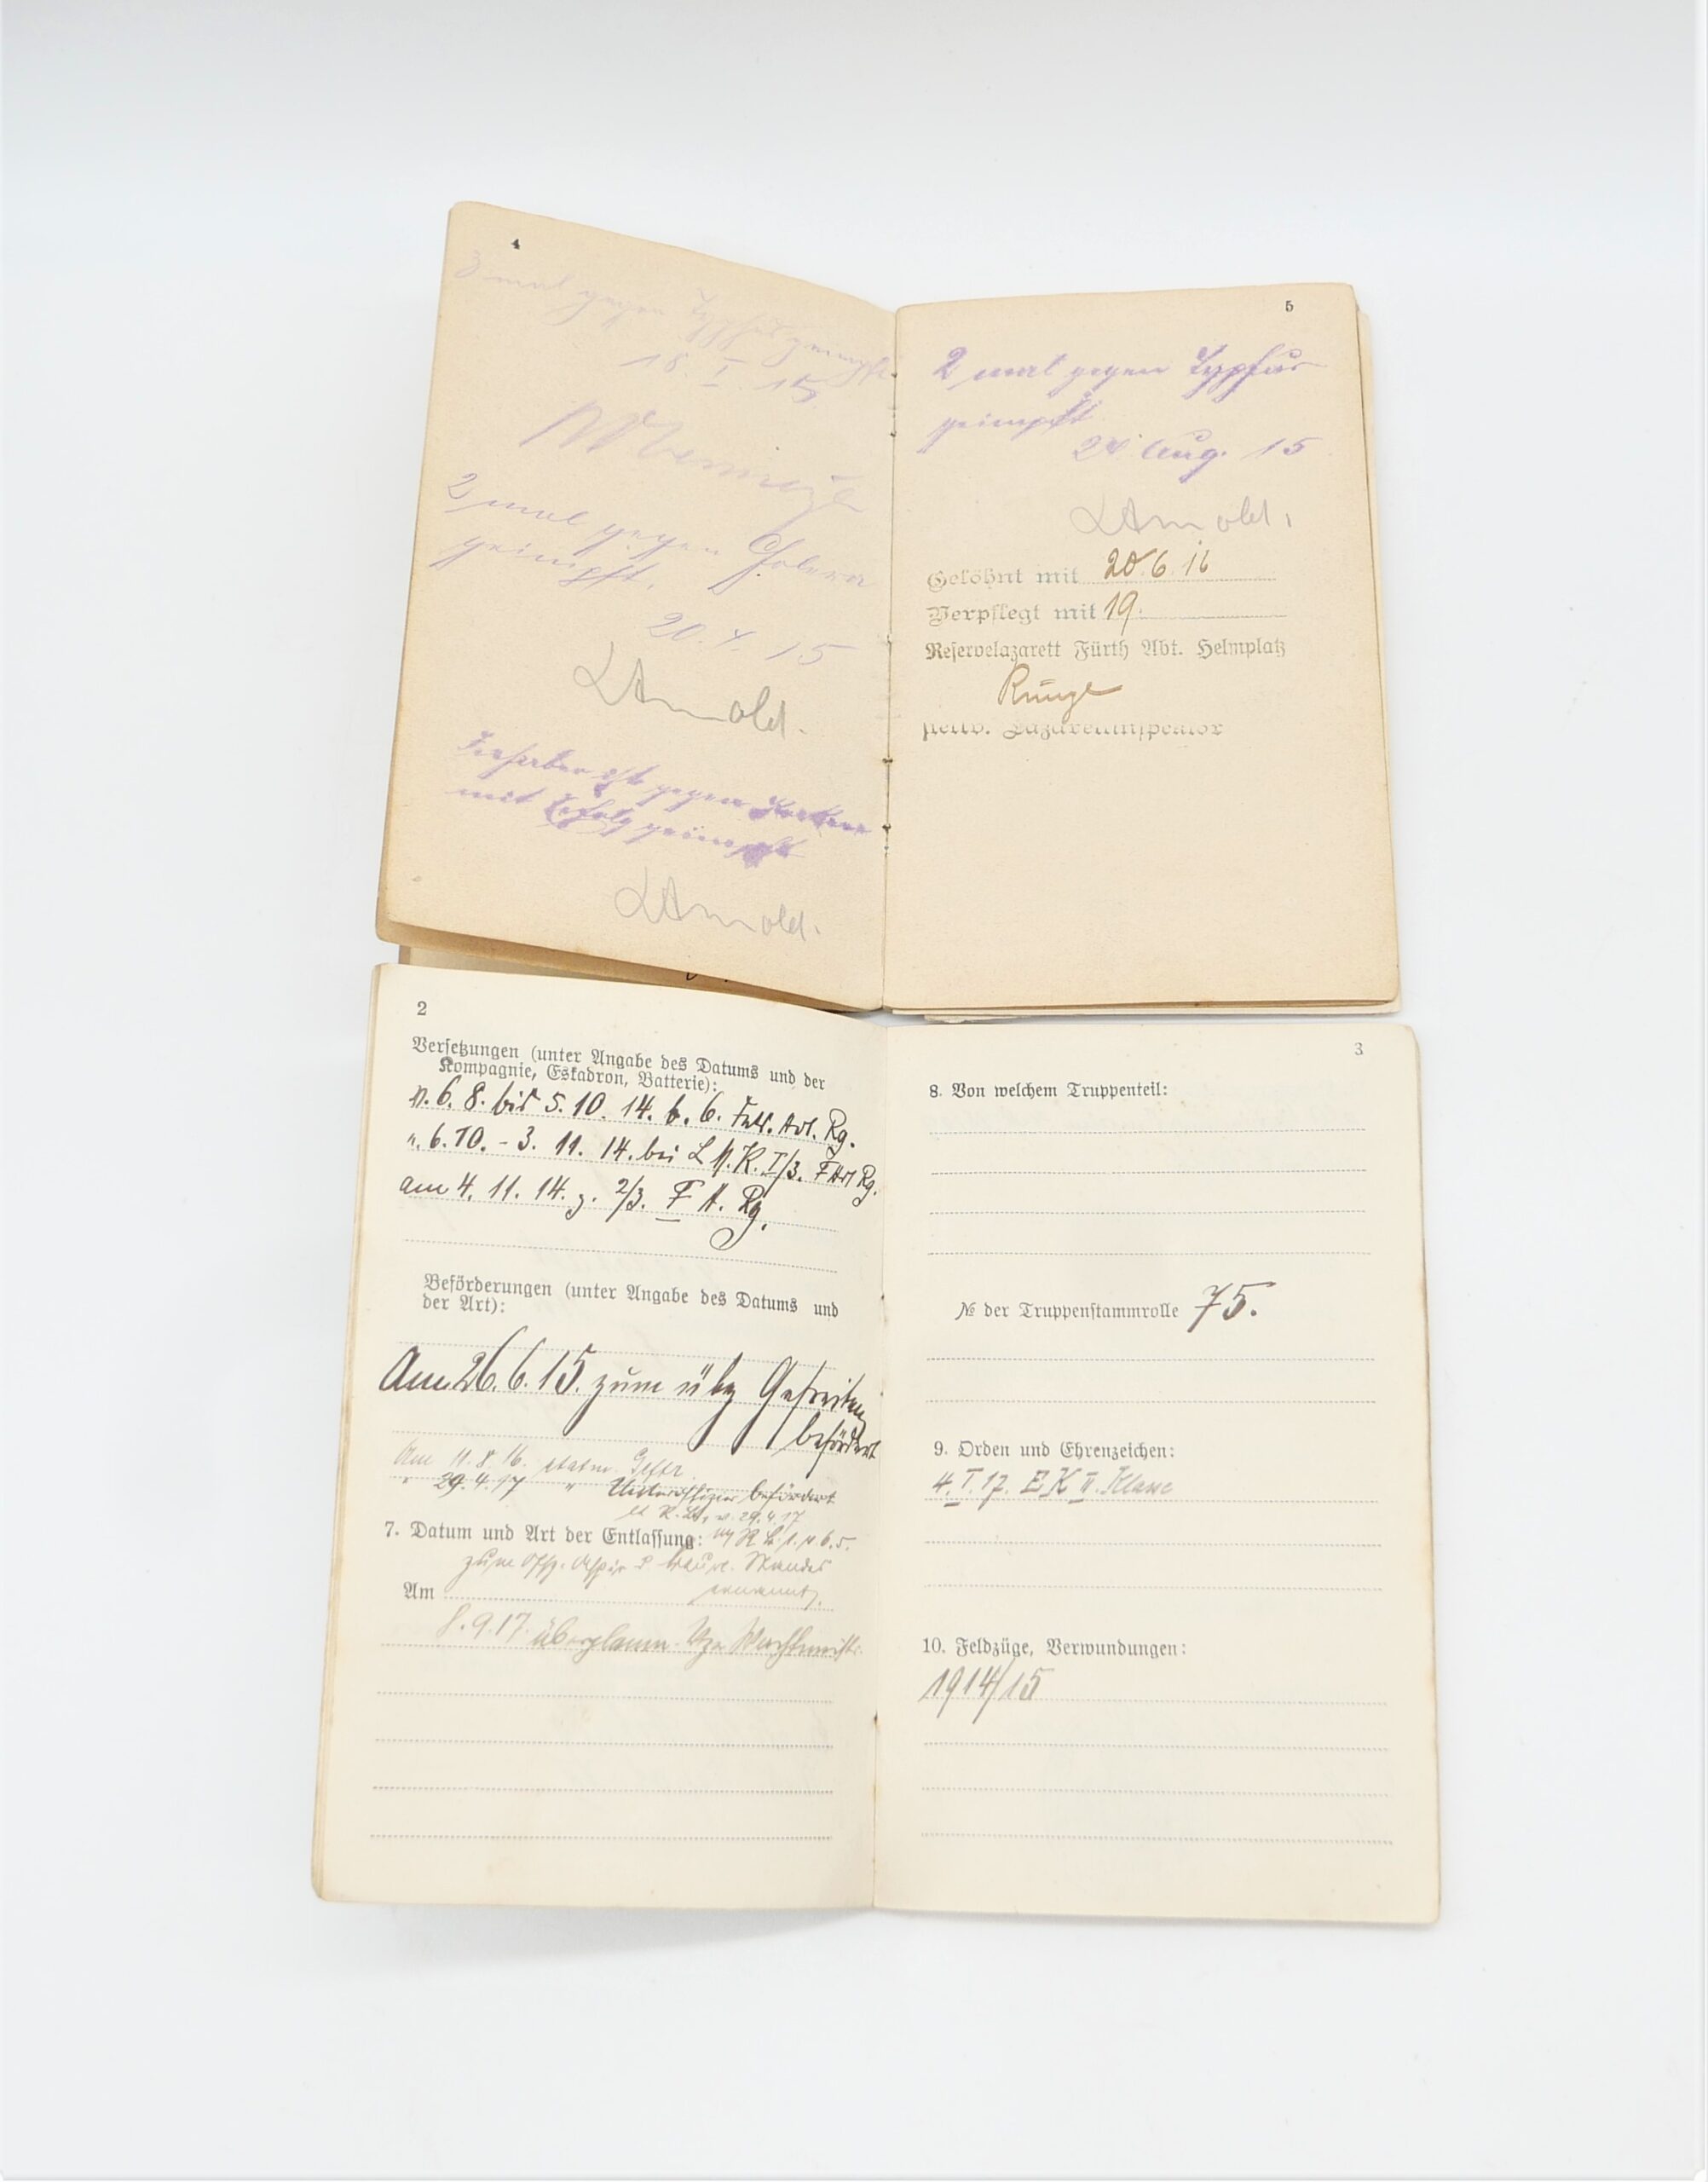 4
3 mal gegen Typhus geimpft
18. I. 15.
2 mal gegen Cholera
geimpft.
20.4.15
LArnold.
Inhaber ist gegen Pocken
mit Erfolg geimpft
LArnold.
5
2 mal gegen Typhus
geimpft
24. Aug. 15
LArnold.
Gelöhnt mit 20.6.16
Verpflegt mit 19.
Reservelazarett Fürth Abt. Helmplatz
Runge
stellv. Lazarettinspektor
2
Versetzungen (unter Angabe des Datums und der
Kompagnie, Eskadron, Batterie):
v. 6. 8. bis 5. 10. 14. b. 6. Art. Rg.
v. 6. 10. - 3. 11. 14. bei L.M.K. I/3. F Art Rg.
am 4. 11. 14. z. 2/3. F A. Rg.
Beförderungen (unter Angabe des Datums und
der Art):
Am 26.6.15. zum übz Gefreiten
befördert
Am 11.8.16. etatm. Gefr.
" 29.4.17 " Unteroffizier befördert
29.4.17
7. Datum und Art der Entlassung:
zum Offz. Aspir. d. Beurl. Standes
Am ernannt.
8.9.17. überplanm. Vze Wachtmstr.
3
8. Von welchem Truppenteil:
№ der Truppenstammrolle 75.
9. Orden und Ehrenzeichen:
4. I. 17. E K II. Klasse
10. Feldzüge, Verwundungen:
1914/15